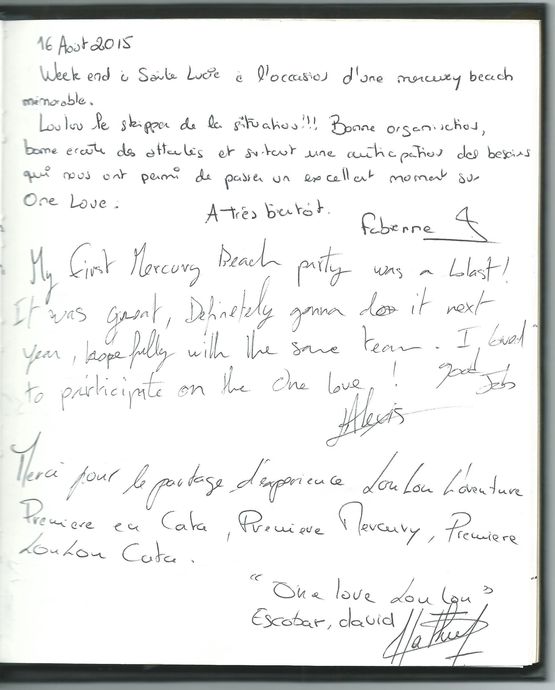 16 Août 2015
Week end à Sainte Lucie à l'occasion d'une mercury beach
mémorable.
Loulou le skipper de la situation!!! Bonne organisation,
bonne écoute des attentes et surtout une anticipation des besoins
qui nous ont permi de passer un excellent moment sur
One Love.
A très bientôt.
Fabienne
My first Mercury Beach party was a blast!
It was great, Definetely gonna do it next
year, hopefully with the same team. I loved
to participate on the One love! good
Job
Alexis
Merci pour le partage d'experience LouLou L'aventure
Premiere en Cata, Premiere Mercury, Premiere
LouLou Cata.
"One love Lou Lou"
Escobar, david